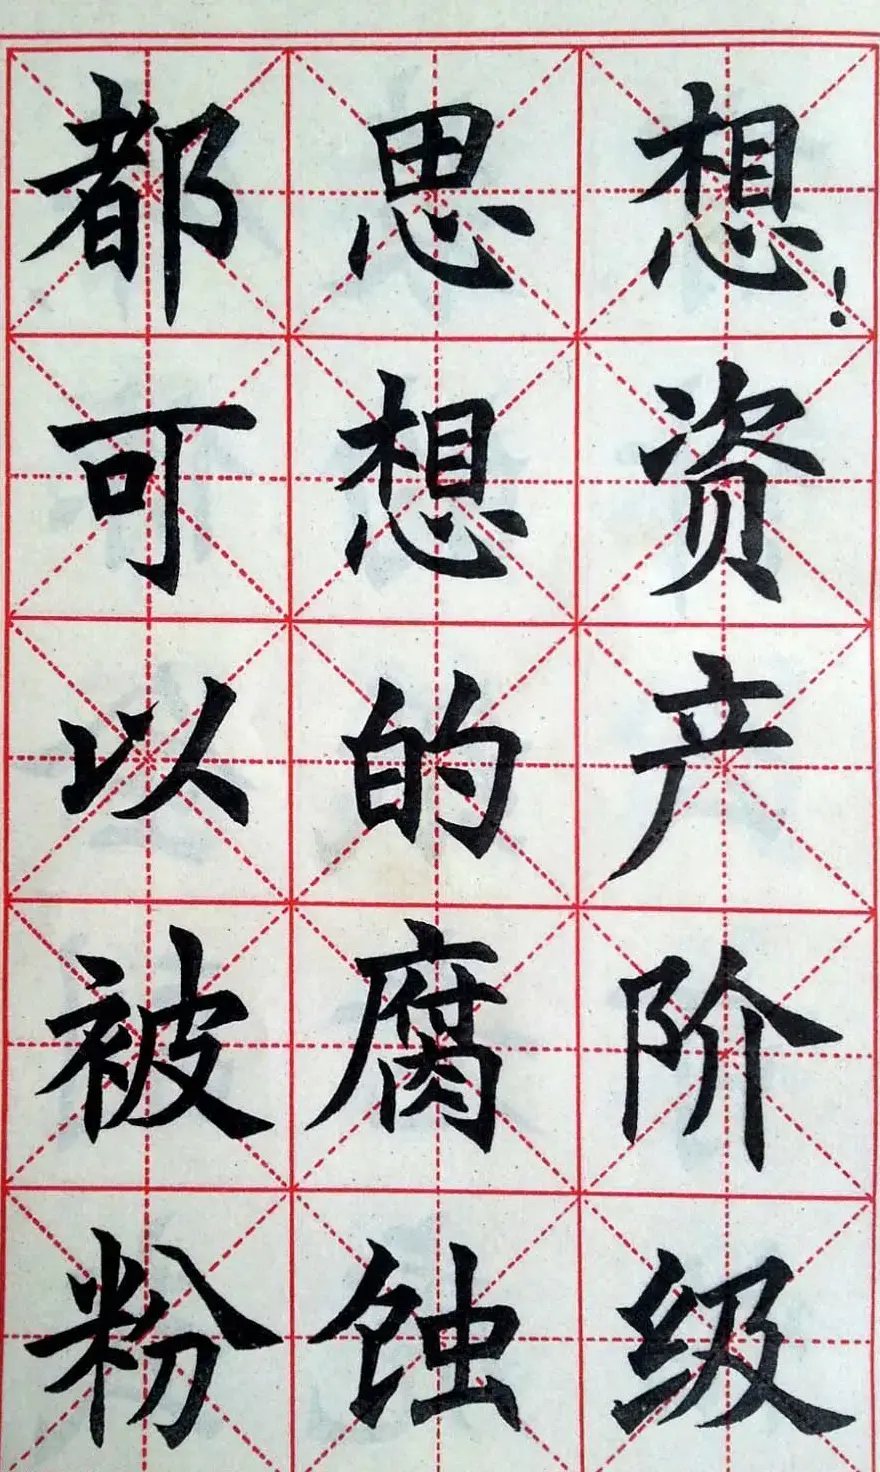 想！资产阶级
思想的腐蚀
都可以被粉